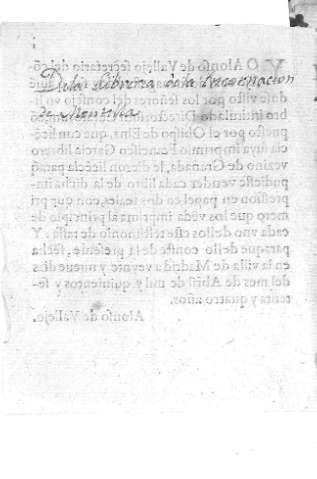 YO Alonso de Vallejo secretario del cõ
De la libreria de la Encarnacion
de
dose visto por los señores del consejo vn li-
bro intitulado Directorium
puesto por el Obispo de Elna, que con licẽ
cia suya imprimio Francisco Garcia librero
vezino de Granada, le dieron licẽcia para q̃
pudiesse vender cada libro de la dicha im-
pression en papel en dos reales, con que pri
mero que los vẽda imprima al principio de
cada vno dellos este testimonio de tassa. Y
paraque dello conste de la presente, fecha
en la villa de Madrid a veynte y nueue dias
del mes de Abril de mil y quinientos y se-
tenta y quatro años.
Alonso de Vallejo.